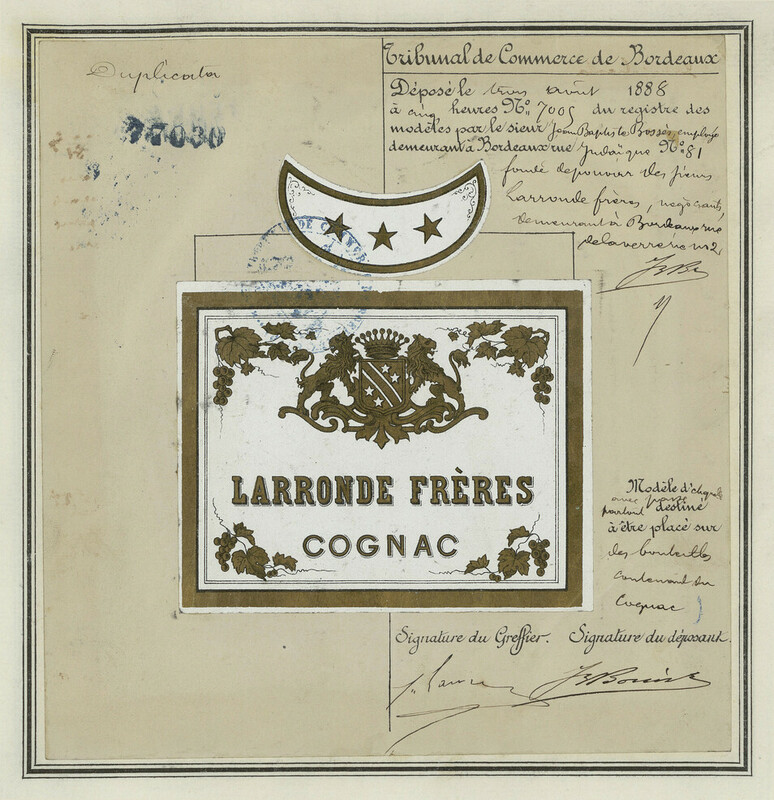 Duplicata
77030
Tribunal de Commerce de Bordeaux
Déposé le trois août 1888
à cinq heures No. 7005 du registre des
modèles par le sieur Jean Baptiste employé
demeurant à Bordeaux rue Judaïque No. 81
fondé de pouvoir des sieurs
Larronde frères, négociants,
demeurant à Bordeaux rue
de la verrerie no 2
LARRONDE FRÈRES
COGNAC
Modèle d'étiquette
avec
partout destiné
à être placé sur
des bouteilles
contenant du
Cognac
Signature du Greffier. Signature du déposant.